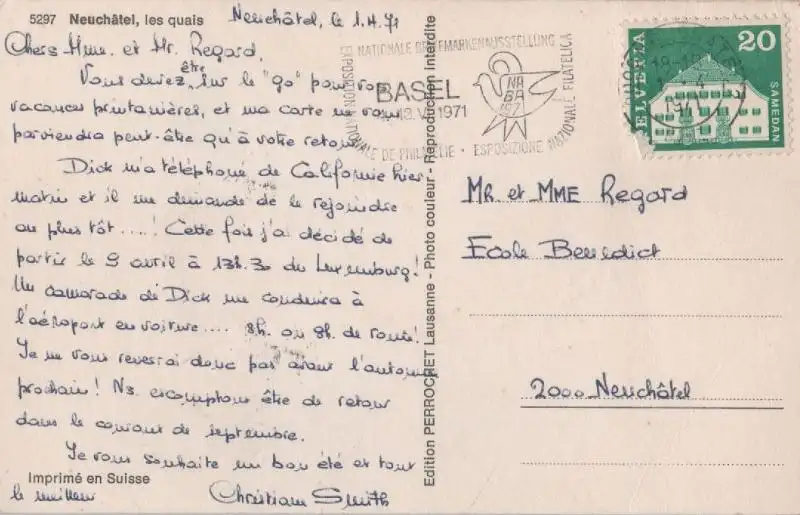 5297 Neuchâtel, les quais
Neuchâtel, le 1.4.71
Chers Mme. et Mr. Regard,
Vous devez être sur le "go" pour vos
vacances printanières, et ma carte ne vous
parviendra peut-être qu'à votre retour.
Dick m'a téléphoné de Californie hier
matin et il me demande de le rejoindre
au plus tôt....! Cette fois j'ai décidé de
partir le 9 avril à 13h.30 du Luxembourg!
Un camarade de Dick me conduira à
l'aéroport en voiture.... 8h. ou 9h. de route!
Je ne vous reverrai donc pas avant l'automne
prochain! Ns. escomptons être de retour
dans le courant de septembre.
Je vous souhaite un bon été et tout
le meilleur
Christiane Smith
Imprimé en Suisse
Edition PERROCHET Lausanne - Photo couleur - Reproduction interdite
NATIONALE BRIEFMARKENAUSSTELLUNG
EXPOSITION NATIONALE DE PHILATELIE · ESPOSIZIONE NAZIONALE FILATELICA
BASEL
1971
NA
BA
1971
HELVETIA
20
SAMEDAN
1971
Mr. et Mme Regard
Ecole Benedict
2000 Neuchâtel